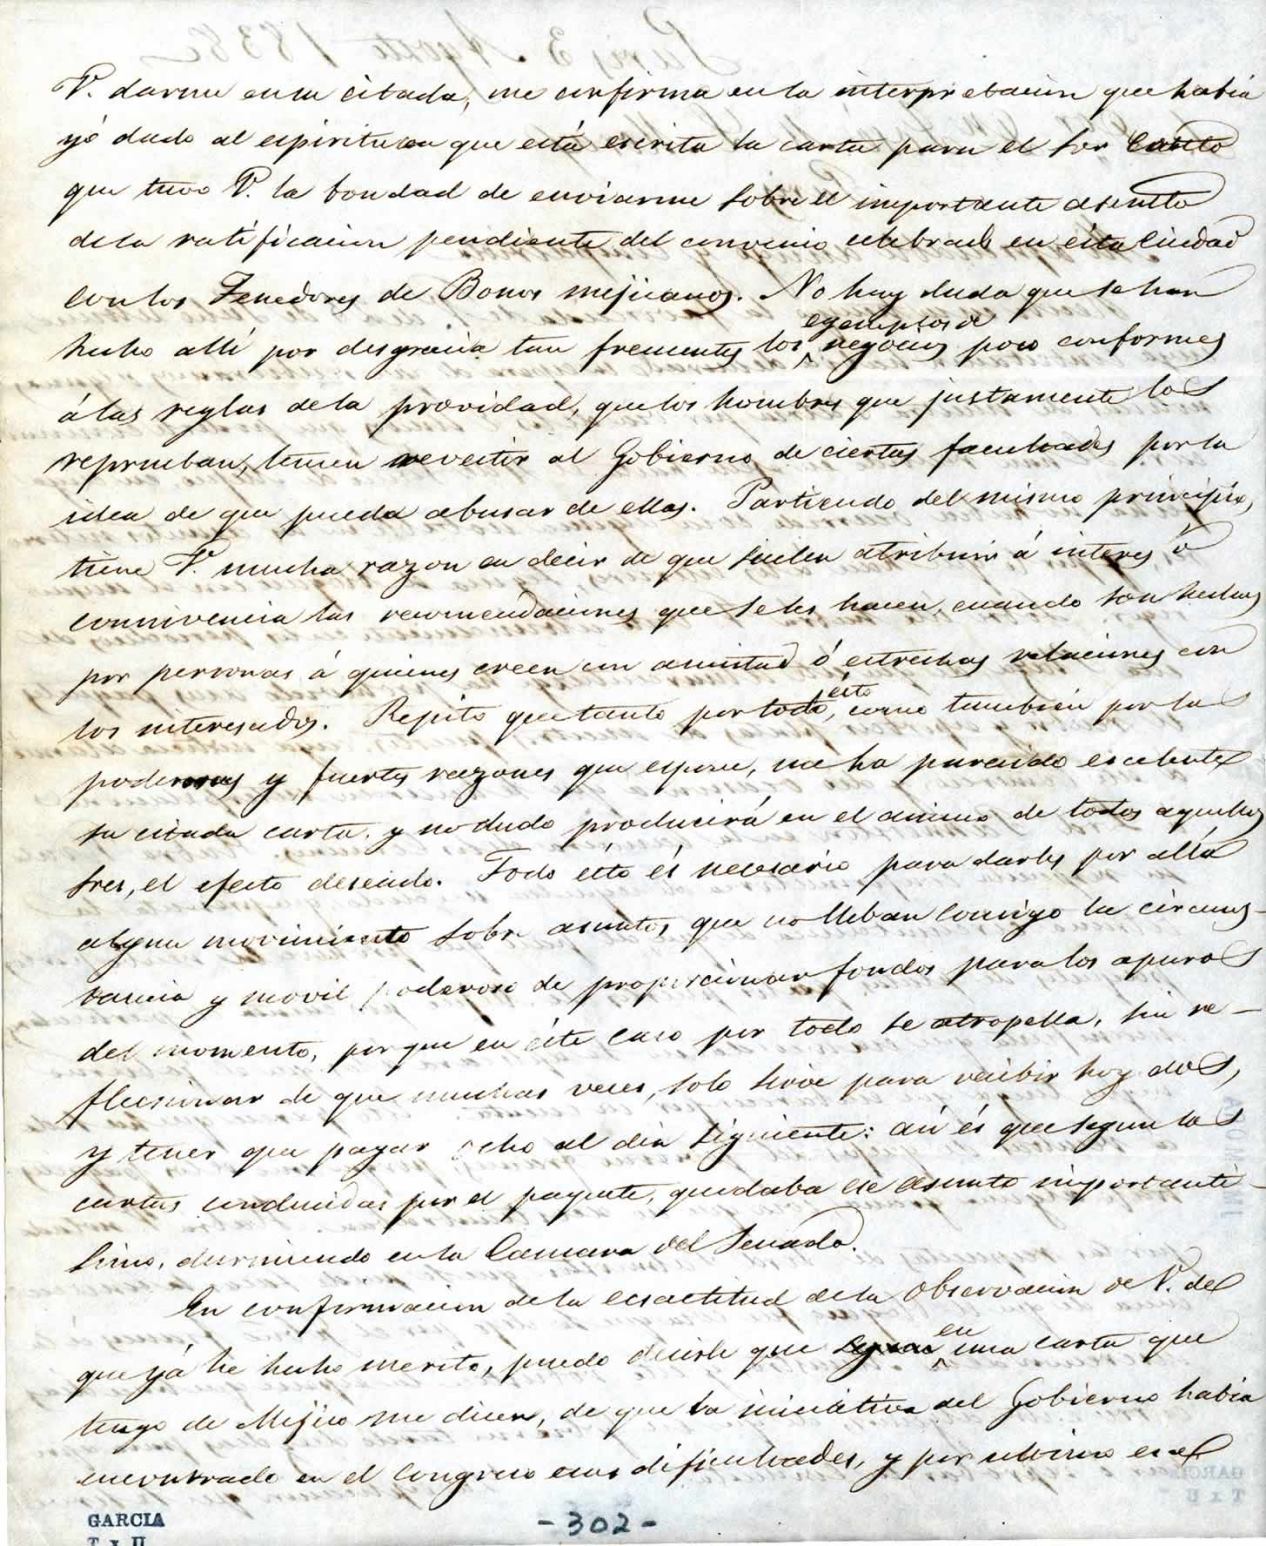 V. darme en su citada, me confirma en la interpretacion que habia
yá dado al espiritu en que está escrita la carta para el Sor Canto
que tuvo V. la bondad de enviarme sobre el importante asunto
de la ratificacion pendiente del convenio celebrado en esta Ciudad
con los Tenedores de Bonos mejicanos. No hay duda que se han
hecho allí por desgracia tan frecuentes los egemplos de negocios poco conformes
á las reglas de la providad, que los hombres que justamente los
reprueban, temen revestir al Gobierno de ciertas facultades por la
idea de que pueda abusar de ellas. Partiendo del mismo principio,
tiene V. mucha razon en decir de que suelen atribuir á interes ó
connivencia las recomendaciones que se les hacen, cuando son hechas
por personas á quienes creen con amistad ó estrechas relaciones con
los interesados. Repito que tanto por todo ésto, como tambien por las
poderosas y fuertes razones que espone, me ha parecido escelente
su citada carta, y no dudo producirá en el animo de todos aquellos
Sres, el efecto deseado. Todo ésto és necesario para darles por allá
algun movimiento sobre asuntos que no lleban consigo la circuns-
tancia y movil poderoso de proporcionar fondos para los apuros
del momento, porque en éste caso por todo se atropella, sin re-
flecsionar de que muchas veces, solo sirve para recibir hoy dos,
y tener que pagar ocho al dia siguiente: así és que segun las
cartas conducidas por el paquete, quedaba ese asunto importanti-
simo, durmiendo en la Camara del Senado.
En confirmacion de la ecsactitud de la observacion de V. del
que yá he hecho merito, puedo decirle que en una carta que
tengo de Mejico me dicen, de que la iniciativa del Gobierno habia
encontrado en el Congreso esas dificultades, y por ultimo en el
GARCIA
- 302 -